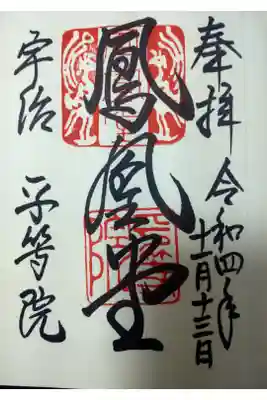 奉拝
令和四年
十一月十三日
鳳凰堂
宇治 平等院